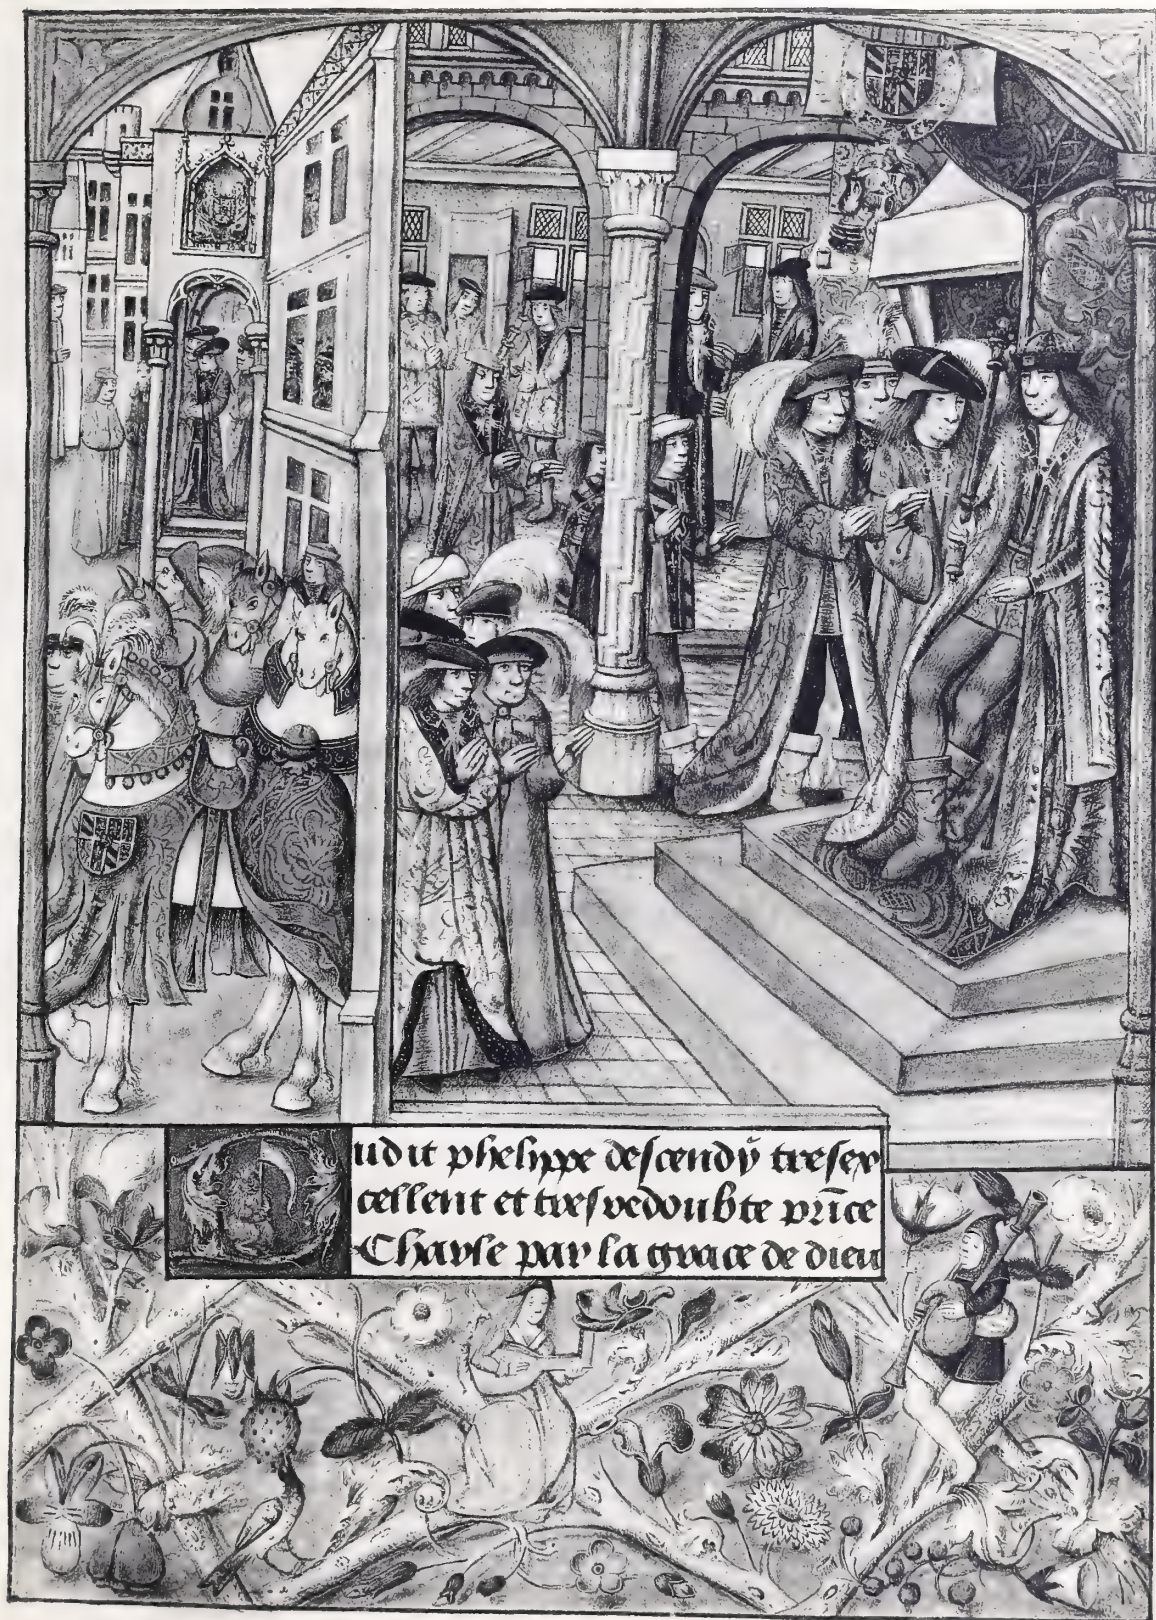 Dudit phelippe descendy tresex
cellent et tresredoubte prīce
Charle par la grace de dieu